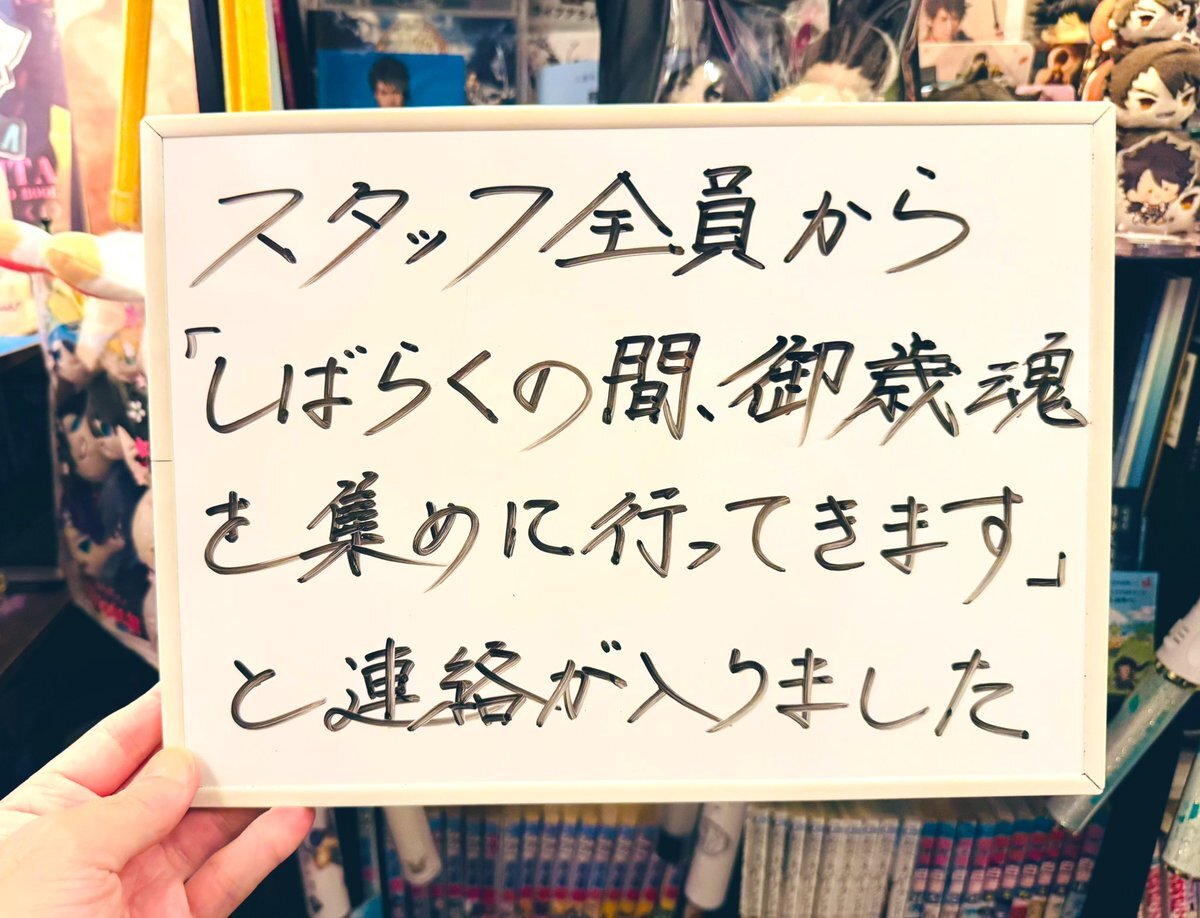 スタッフ全員から
「しばらくの間、御歳魂
を集めに行ってきます」
と連絡が入りました